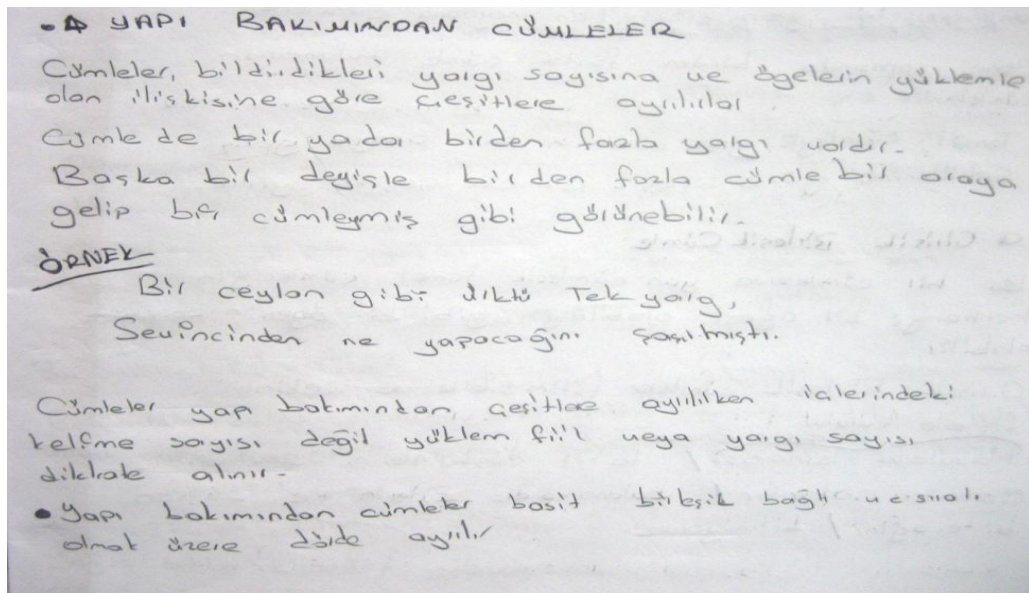 YAPI BAKIMINDAN CÜMLELER
Cümleler, bildirdikleri yargı sayısına ve ögelerin yüklemle
olan ilişkisine göre çeşitlere ayrılırlar
Cümle de bir yada birden fazla yargı vardır.
Başka bir deyişle birden fazla cümle bir araya
gelip bir cümleymiş gibi görünebilir.
ÖRNEK
Bir ceylan gibi ürktü Tek yargı
Sevincinden ne yapacağını şaşırmıştı.
Cümleler yapı bakımından çeşitlere ayılırken içlerindeki
kelime sayısı değil yüklem fiil veya yargı sayısı
dikkate alınır.
• Yapı bakımından cümleler basit birleşik bağlı ve sıralı
olmak üzere dörde ayrılır